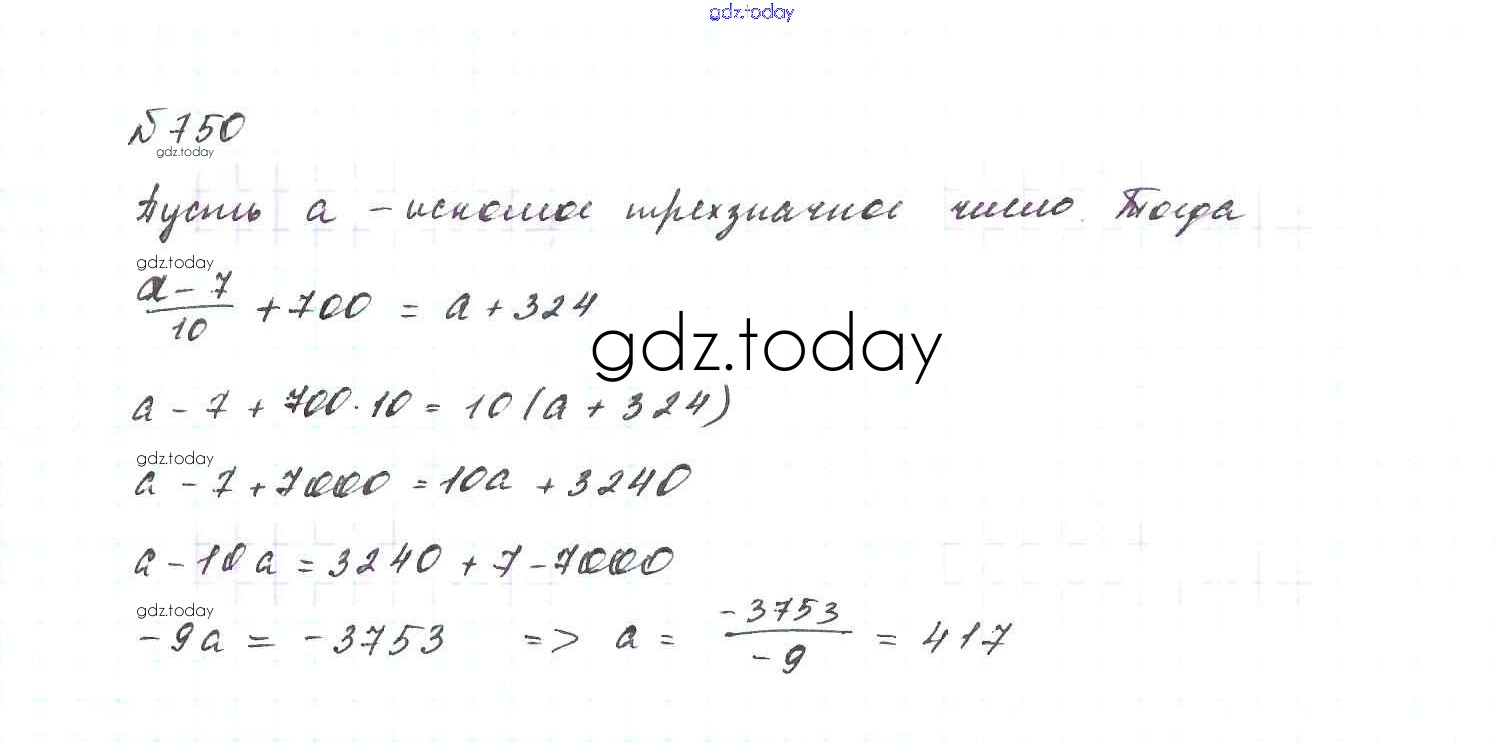 gdz.today
№750
gdz.today
Пусть a – искомое трехзначное число. Тогда
gdz.today
(a – 7)/10 + 700 = a + 324
gdz.today
a – 7 + 700 · 10 = 10(a + 324)
gdz.today
a – 7 + 7000 = 10a + 3240
a – 10a = 3240 + 7 – 7000
gdz.today
–9a = –3753 => a = –3753/–9 = 417